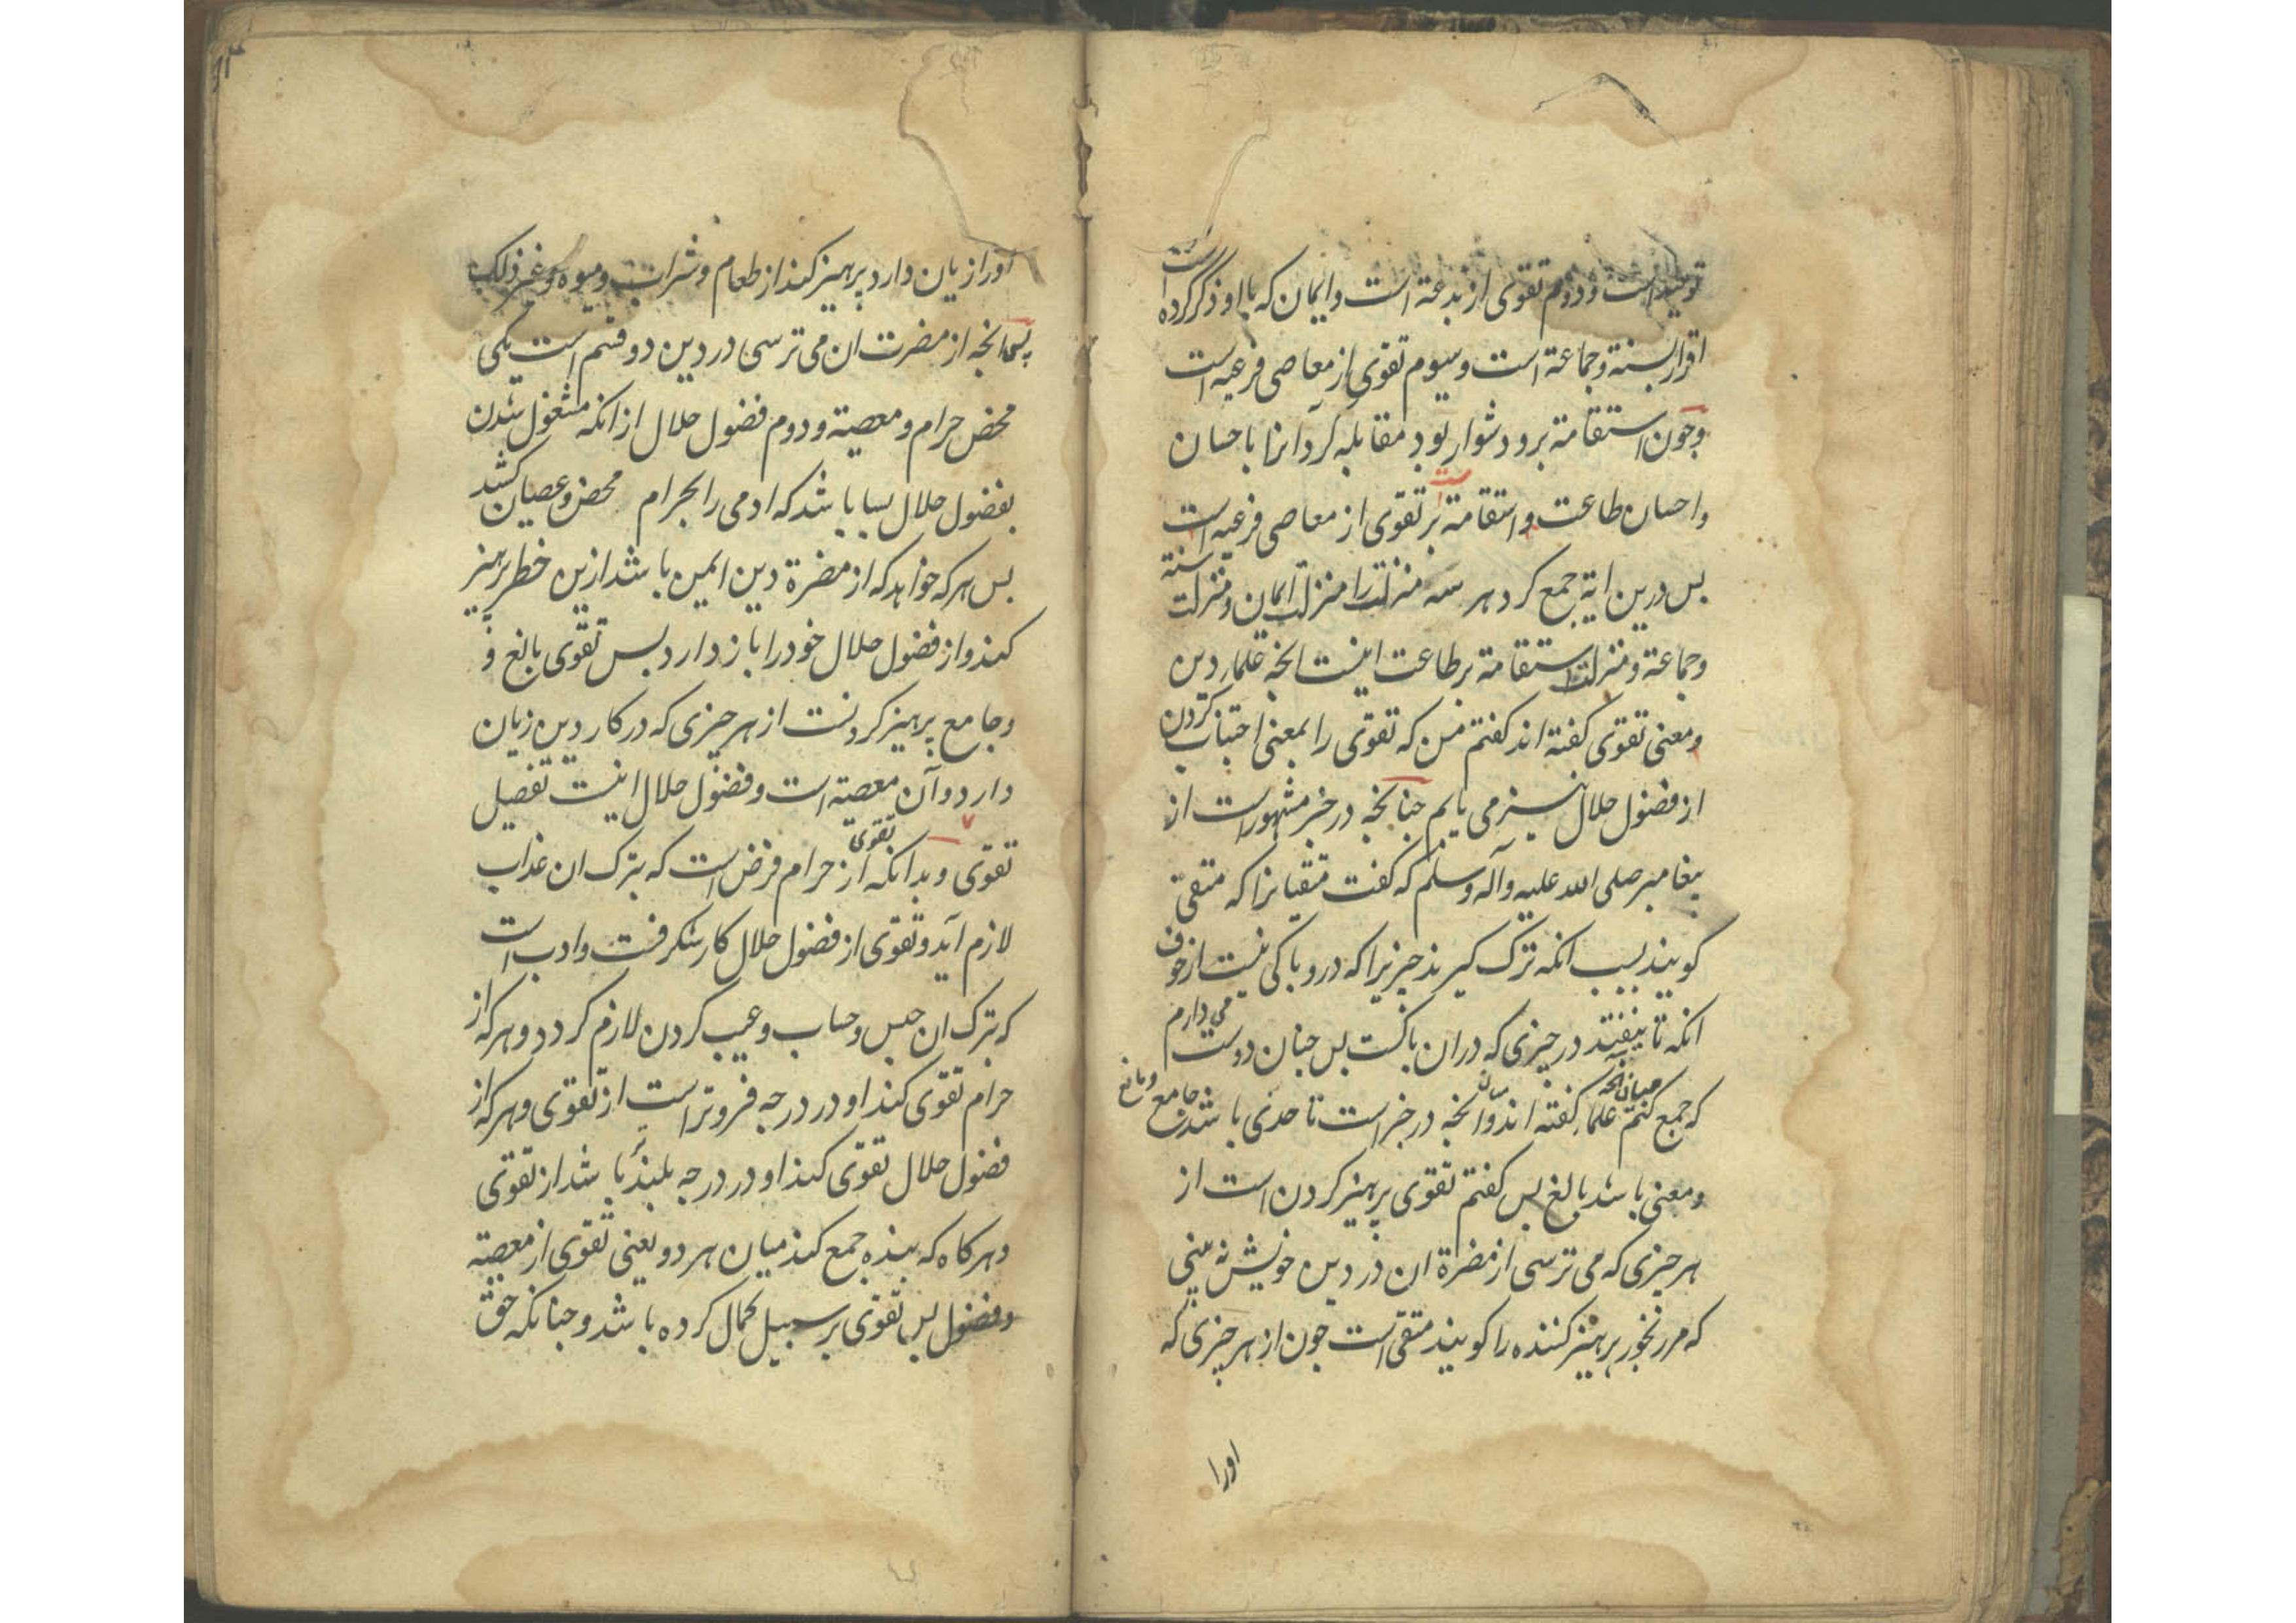 توحید است و دوم تقوی از بدعة است و ایمان که با او ذکر کرده است
اقرار بسنة و جماعة است و سیوم تقوی از معاصی فرعیه است
و جون استقامة برو دشوار بود مقابله کرد انرا با حسان
و احسان طاعت و استقامة است بر تقوی از معاصی فرعیه است
بس درین ایة جمع کرد هر سه منزلت را منزلت ایمان و منزلت سنة
و جماعة و منزلت استقامة بر طاعت اینست انجه علماء دین
و معنی تقوی کفته اند کفتم من که تقوی را بمعنی اجتناب کردن
از فضول حلال نیز می یابم جنانجه در خبر مشهور است از
بیغامبر صلی الله علیه و آله و سلم که کفت متقیانرا که متقی
کویند بسبب انکه ترک کیرند جیزیرا که درو باکی نیست از خوف
انکه تا بیفتند در جیزی که دران باکست بس جنان دوست می دارم
که جمع کنم میان انجه علماء کفته اند و آنجه در خبر است تا حدی باشد جامع و مانع
و معنی باشد بالغ بس کفتم تقوی پرهیز کردن است از
هر جیزی که می ترسی از مضرة ان در دین خویش نه بینی
که مر رنجور پرهیز کننده را کویند متقی است جون از هر جیزی که
اورا
اورا زیان دارد پرهیز کند از طعام و شراب و میوه و غیر ذلک
پس انجه از مضرت ان می ترسی در دین دو قسم است یکی
محض حرام و معصیة و دوم فضول حلال از انکه مشغول شدن
بفضول حلال بسا باشد که ادمی را بحرام محض و عصیان کشد
بس هر که خواهد که از مضرة دین ایمن باشد ازین خطر پرهیز
کند و از فضول حلال خود را باز دارد بس تقوی بالغ و
و جامع پرهیز کردنست از هر جیزی که در کار دین زیان
دارد و آن معصیة است و فضول حلال اینست تفصیل
تقوی و بدانکه تقوی از حرام فرض است که بترک ان عذاب
لازم آید و تقوی از فضول حلال کار شکرفت و ادب است
که بترک ان حبس و حساب و عیب کردن لازم کردد و هر که از
حرام تقوی کند او در درجه فروتر است از تقوی و هر که از
فضول حلال تقوی کند او در درجه بلند تر باشد از تقوی
و هر کاه که بنده جمع کند میان هر دو یعنی تقوی از معصیة
و فضول بس تقوی بر سبیل کمال کرده باشد و جنانکه حق